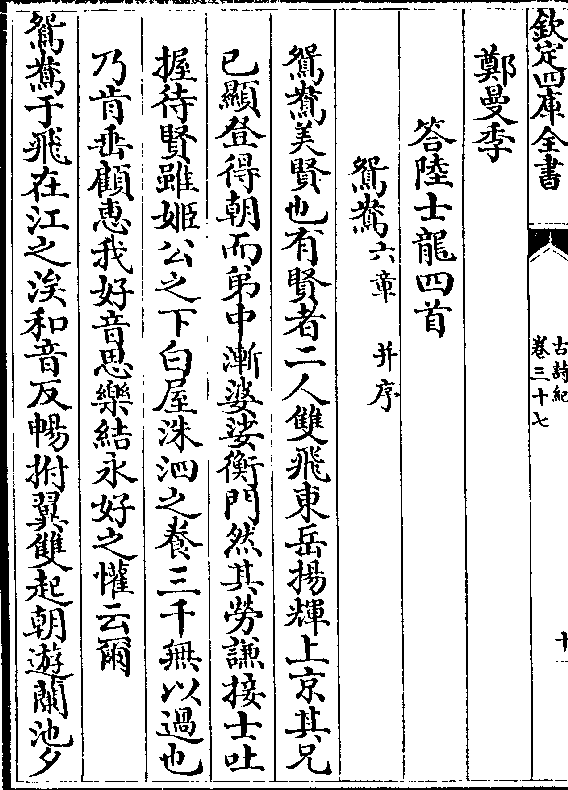 欽定四庫全書
古詩紀
卷三十七
十
鄭曼季
答陸士龍四首
鴛鴦六章 并序
鴛鴦美賢也有賢者二人雙飛東岳揚輝上京其兄
已顯登得朝而弟中漸婆娑衡門然其勞謙接士吐
握待賢雖姬公之下白屋洙泗之養三千無以過也
乃肯垂顧惠我好音思樂結永好之懽云爾
鴛鴦于飛在江之涘和音反暢拊翼雙起朝遊蘭池夕